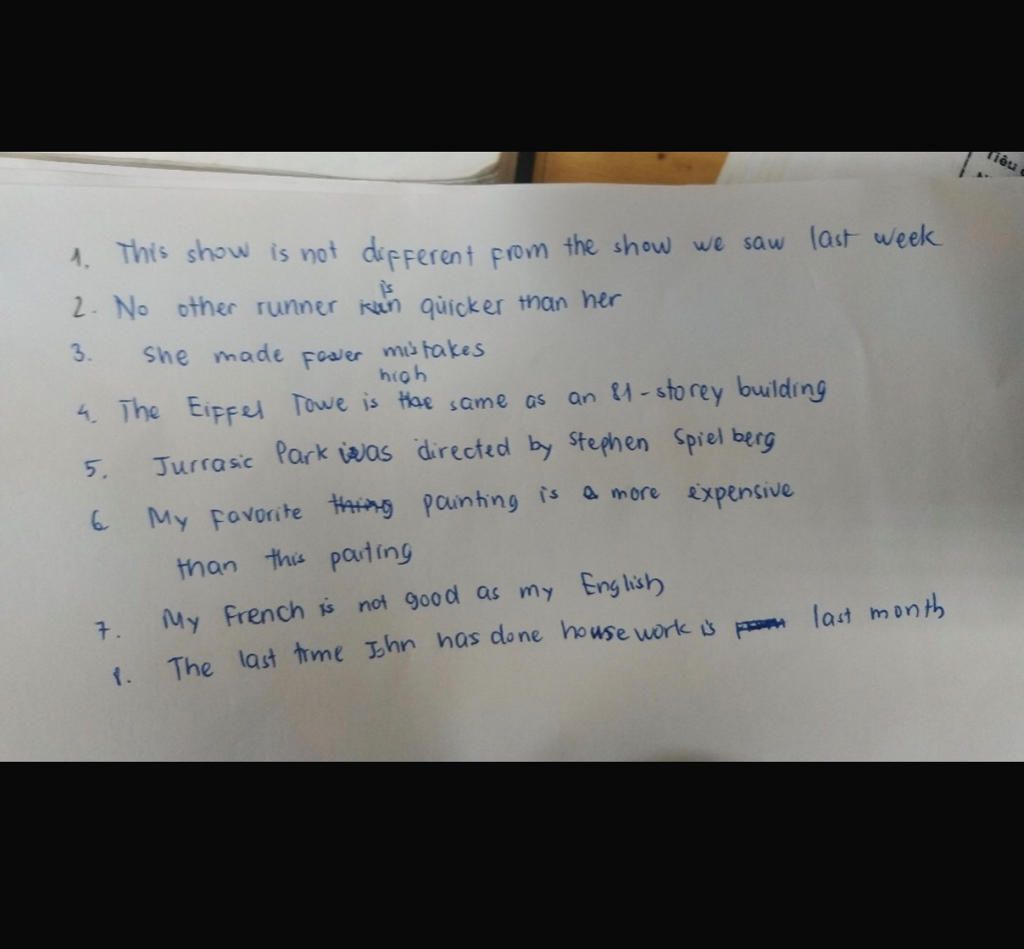 Tiêu
1. This show is not different from the show we saw last week
is
2. No other runner run quicker than her
3. She made fower mistakes
high
4. The Eiffel Towe is the same as an 81-storey building
5. Jurrasic Park was directed by Stephen Spielberg
6 My favorite thing painting is a more expensive
than this paiting
7. My French is not good as my English
8. The last time John has done housework is last month